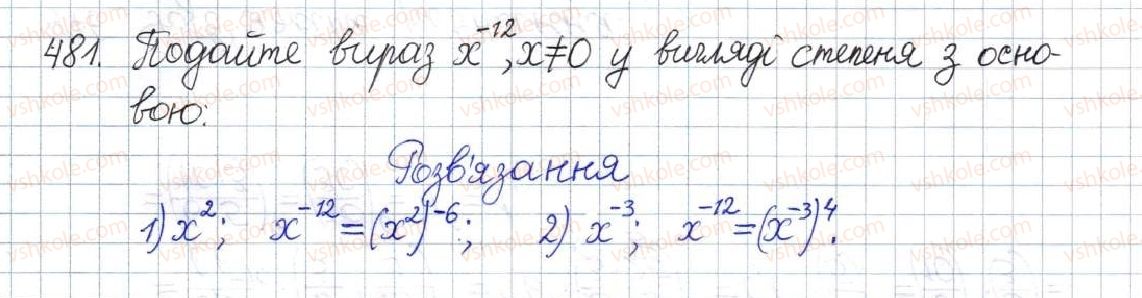 481. Подайте вираз x⁻¹², x≠0 у вигляді степеня з осно-
вою:
Розв'язання
1) x²; x⁻¹² = (x²)⁻⁶; 2) x⁻³; x⁻¹² = (x⁻³)⁴.